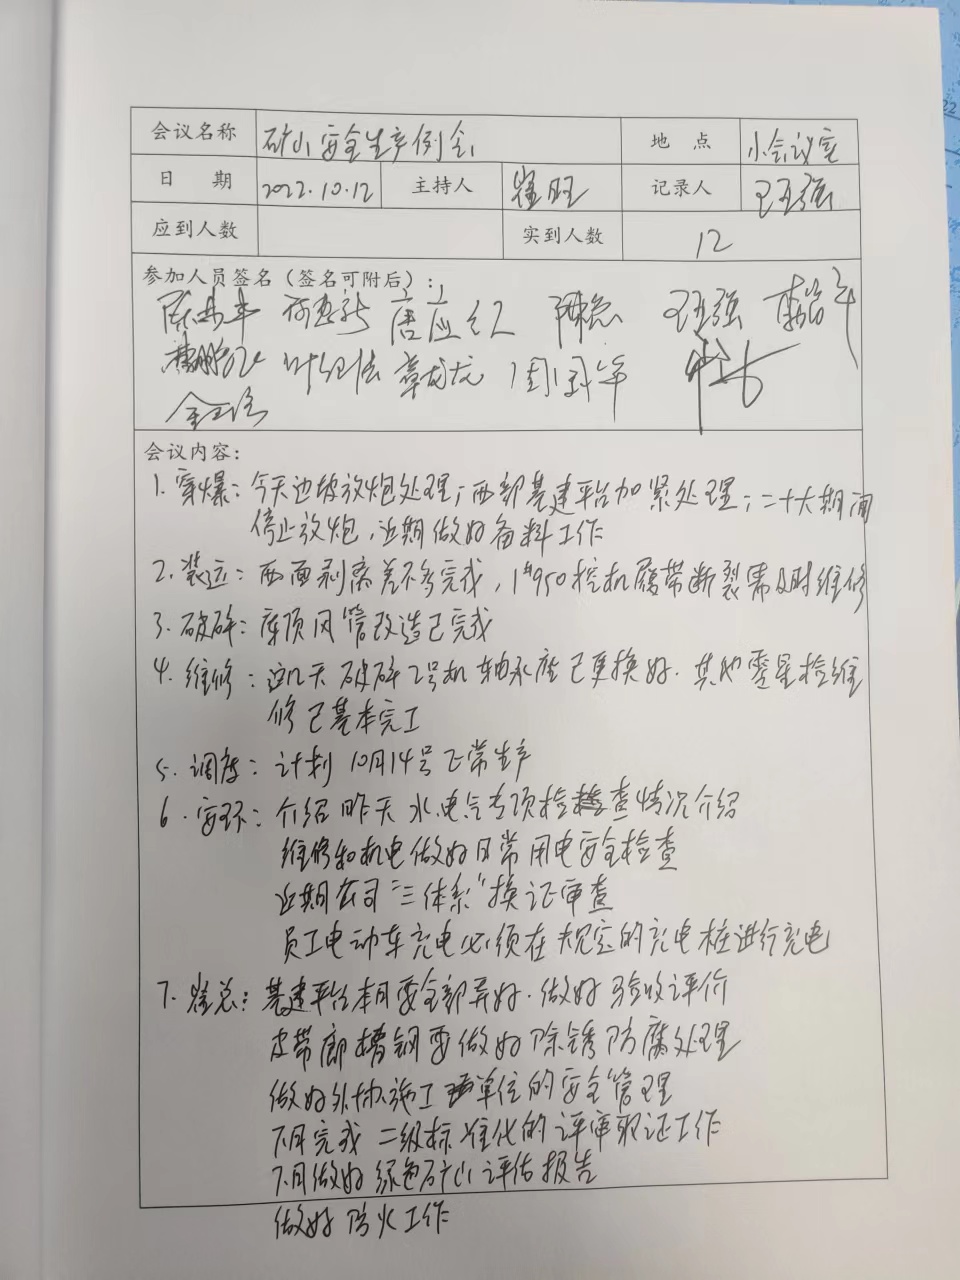 会议名称 矿山安全生产例会 地 点 小会议室
日 期 2022.10.12 主持人 崔旺 记录人 王强
应到人数 实到人数 12
参加人员签名（签名可附后）：
唐应红 王强
叶红法 章成龙 周国华
会议内容：
1. 穿爆：今天边坡放炮处理；西部基建平台加紧处理；二十大期间
停止放炮，近期做好备料工作
2. 装运：西面剥离差不多完成，1#950挖机履带断裂需及时维修
3. 破碎：库顶风管改造已完成
4. 维修：这几天破碎2号机轴承座已更换好.其他零星检维
修已基本完工
5. 调度：计划10月14号正常生产
6. 安环：介绍昨天水.电气专项检查情况介绍
维修和机电做好日常用电安全检查
近期公司“三体系”换证审查
员工电动车充电必须在规定的充电桩进行充电
7. 崔总：基建平台本月要全部弄好.做好验收评价
皮带廊槽钢要做好除锈防腐处理
做好外协施工单位的安全管理
下月完成二级标准化的评审取证工作
下月做好绿色矿山评估报告
做好防火工作